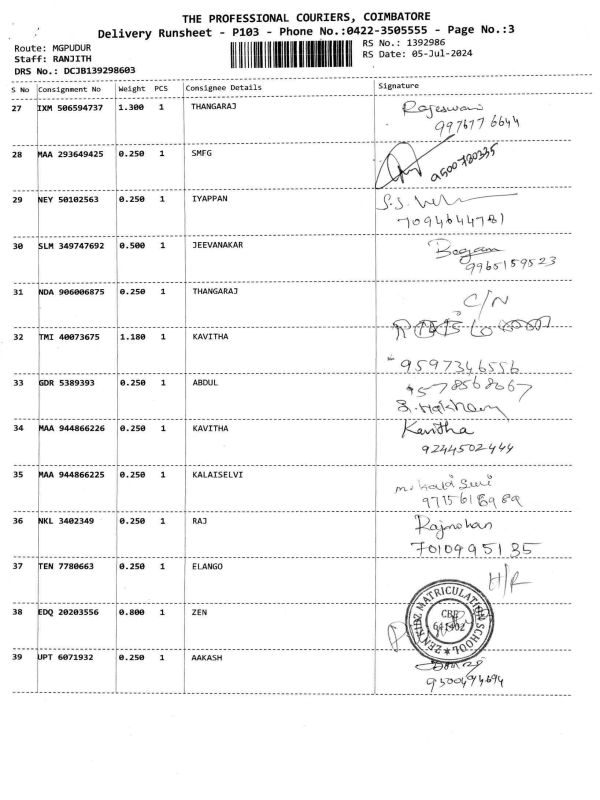 THE PROFESSIONAL COURIERS, COIMBATORE
Delivery Runsheet - P103 - Phone No.:0422-3505555 - Page No.:3
Route: MGPUDUR
Staff: RANJITH
DRS No.: DCJB139298603
RS No.: 1392986
RS Date: 05-Jul-2024
S No Consignment No Weight PCS Consignee Details Signature
27 IXM 506594737 1.300 1 THANGARAJ Rajeswari
9976776644
28 MAA 293649425 0.250 1 SMFG
29 NEY 50102563 0.250 1 IYAPPAN
7094644781
30 SLM 349747692 0.500 1 JEEVANAKAR
9965159523
31 NDA 906006875 0.250 1 THANGARAJ C/N
32 TMI 40073675 1.180 1 KAVITHA
9597346556
33 GDR 5389393 0.250 1 ABDUL
34 MAA 944866226 0.250 1 KAVITHA Kavitha
9244502444
35 MAA 944866225 0.250 1 KALAISELVI
36 NKL 3402349 0.250 1 RAJ Rajmohan
7010995135
37 TEN 7780663 0.250 1 ELANGO H/R
38 EDQ 20203556 0.800 1 ZEN
ZEN KIDZ MATRICULATION SCHOOL
CBE
39 UPT 6071932 0.250 1 AAKASH